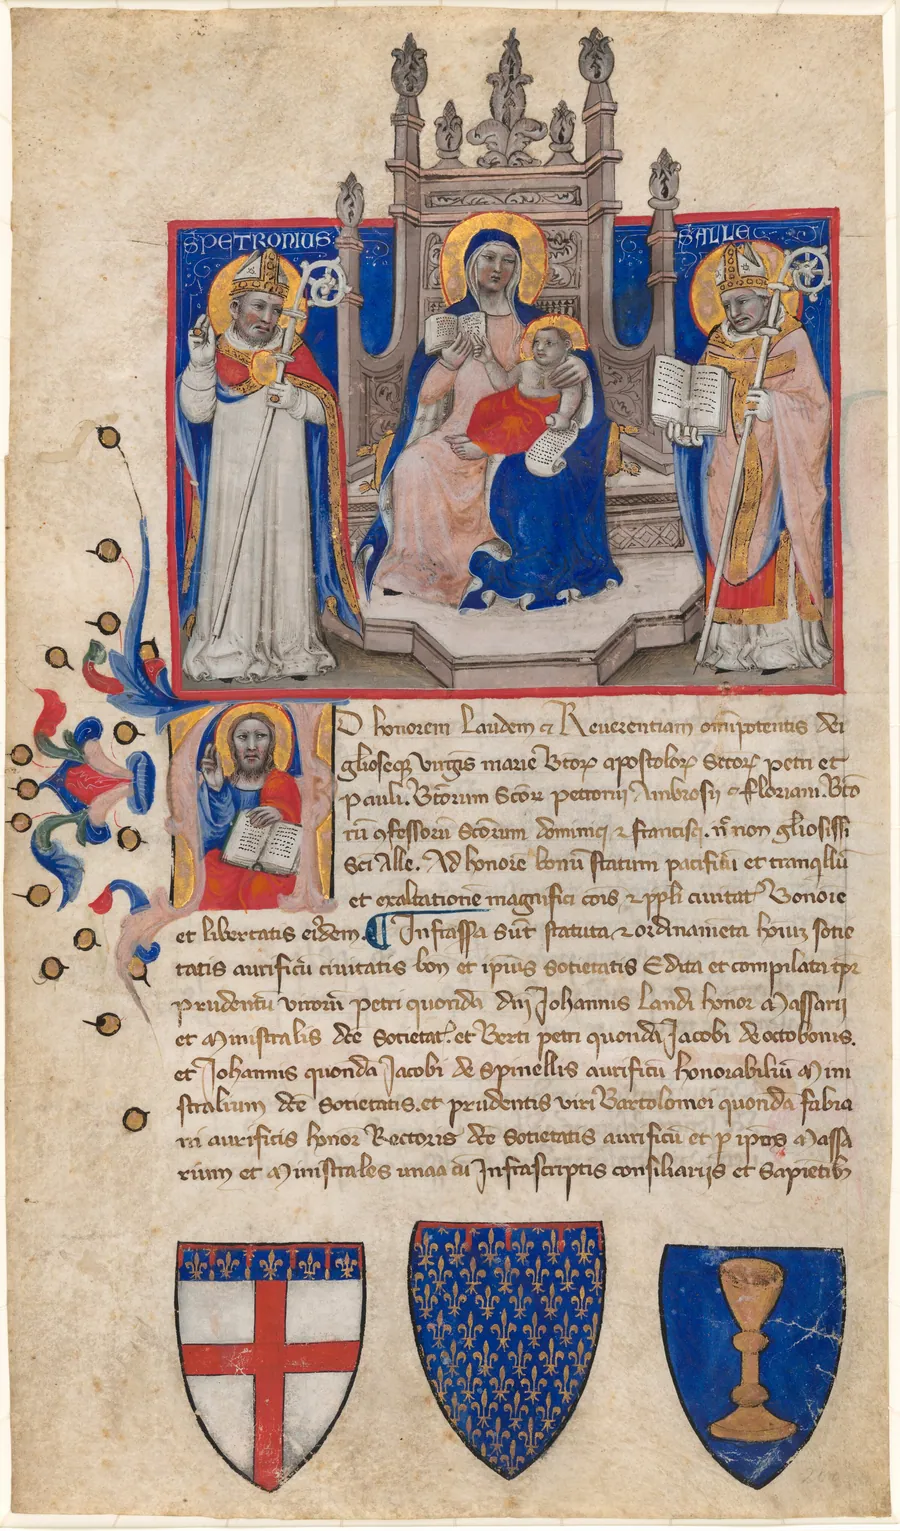 S PETRONIUS
S ALLE
D honorem Laudem et Reuerentiam omnipotentis dei
glioseqz Virgis marie Btorz apostolorz Sctorz petri et
pauli. Btorum Scorz petronij Ambrosij et floriani. Bto
rū ꝯfessorū Scōrum dominici et francisci. nō gliosissi
Sci Alle. Ad honore bonū statum pacificū et tranqllū
et exaltatione magnifici cōis et ppli ciuitat Bononie
et libertatis eidem. ¶ Infrassa sūt statuta et ordinameta hōiuz socie
tatis aurificū ciuitatis bon et ipius societatis Edita et compilata tpr
prudentū virorū petri quondā dnj Johannis Landi honor Massarij
et Ministralis dce Societat. et Berti petri quondā Jacobi de octobonis.
et Johannis quondā Jacobi de Spinellis aurificū honorabiliū Mini
stralium dce Societatis. et prudentis viri Bartolomei quondā fabia
ni aurificis honor Rectoris dce Societatis aurificū et p ipos Massa
rium et Ministrales unaa cū Infrascriptis consiliarijs et Sapietib